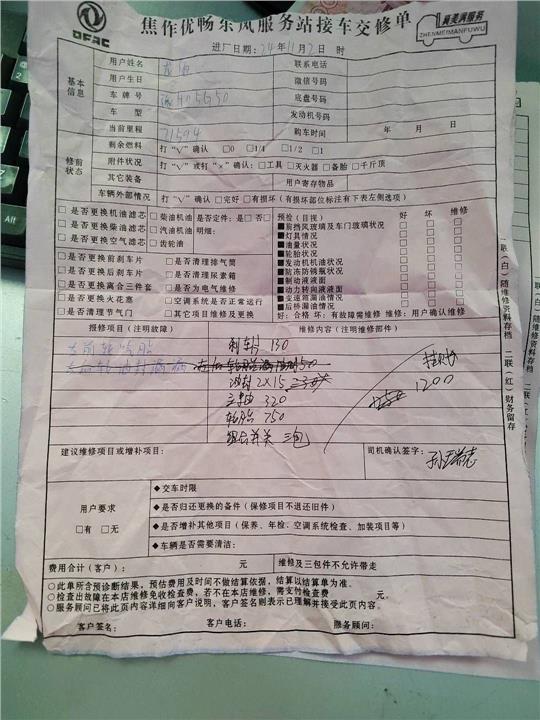 DFAC
焦作优畅东风服务站接车交修单
真美满服务
ZHENMEIMANFUWU
进厂日期: 24年11月2日 时
基本信息
用户姓名 联系电话
用户生日 微信号码
车牌号 底盘号码
车型 发动机号码
当前里程 71594 购车时间 年 月 日
修前状态
剩余燃料 打"√"确认 □0 □1/4 □1/2 □1
附件状况 打"√"或打"×"确认:□工具 □灭火器 □备胎 □千斤顶
其它装备 用户寄存物品
车辆外部情况 打"√"确认 □完好 □有损坏(有损坏部位标注有下表左侧选项)
□是否更换机油滤芯 □柴油机油 是否定件:是□否□
□是否更换柴油滤芯 □汽油机油 明细:
□是否更换空气滤芯 □齿轮油
□是否更换前刹车片 □是否清理排气筒
□是否更换后刹车片 □是否清理尿素箱
□是否更换离合三件套 □是否为电气维修
□是否更换火花塞 □空调系统是否正常运行
□是否清理节气门 □其它项目维修及更换
预检(目视) 好 坏 维修
■肩挡风玻璃及车门玻璃状况 □ □ □
■灯具情况 □ □ □
■油量状况 □ □ □
■轮胎状况 □ □ □
■发动机机油状况 □ □ □
■防冻防锈瓶状况 □ □ □
■制动液液面 □ □ □
■动力转向液液面 □ □ □
■变速箱漏油情况 □ □ □
■后桥漏油情况 □ □ □
好:合格 坏:有故障需维修 维修:用户确认维修
报修项目(注明故障) 维修内容(注明维修部件)
刹车片 130
油封 2X15
320
轮胎 750
三包
1200
建议维修项目或增补项目:
司机确认签字:
用户要求
□有 □无
◆交车时限
◆是否归还更换的备件(保修项目不退还旧件)
◆是否增补其他项目(保养、年检、空调系统检查、加装项目等)
◆车辆是否需要清洁:
费用合计(客户): 元 维修及三包件不允许带走
○此单所含预诊断结果,预估费用及时间不做结算依据,结算以结算单为准。
○检查出故障在本店维修免收检查费,若不在本店维修,需支付检查费 元。
○服务顾问已将此页内容详细向客户说明,客户签名则表示已理解并接受此页内容。
客户签名: 客户电话: 服务顾问:
一联(白)随维修资料存档 二联(红)财务留存
Alt